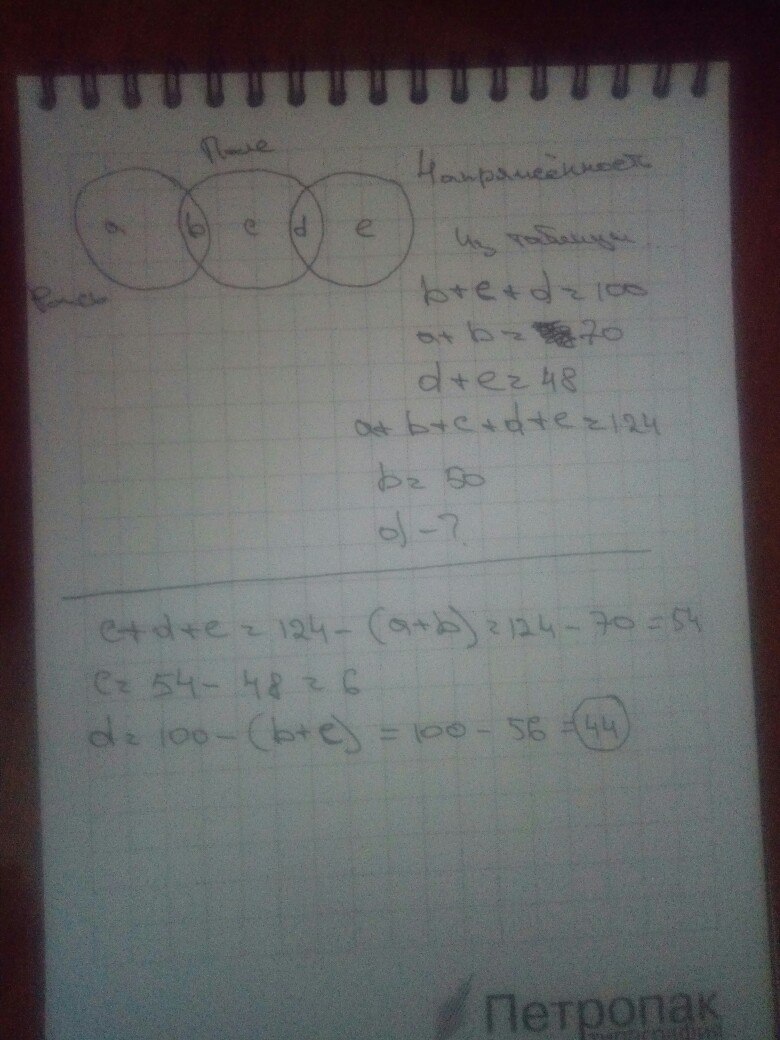 Поле
a b c d e
Напряжённость
Из таблицы
b+c+d=100
a+b=70
d+e=48
a+b+c+d+e=124
b=50
d-?
c+d+e=124-(a+b)=124-70=54
c=54-48=6
d=100-(b+c)=100-56=44
Петропак